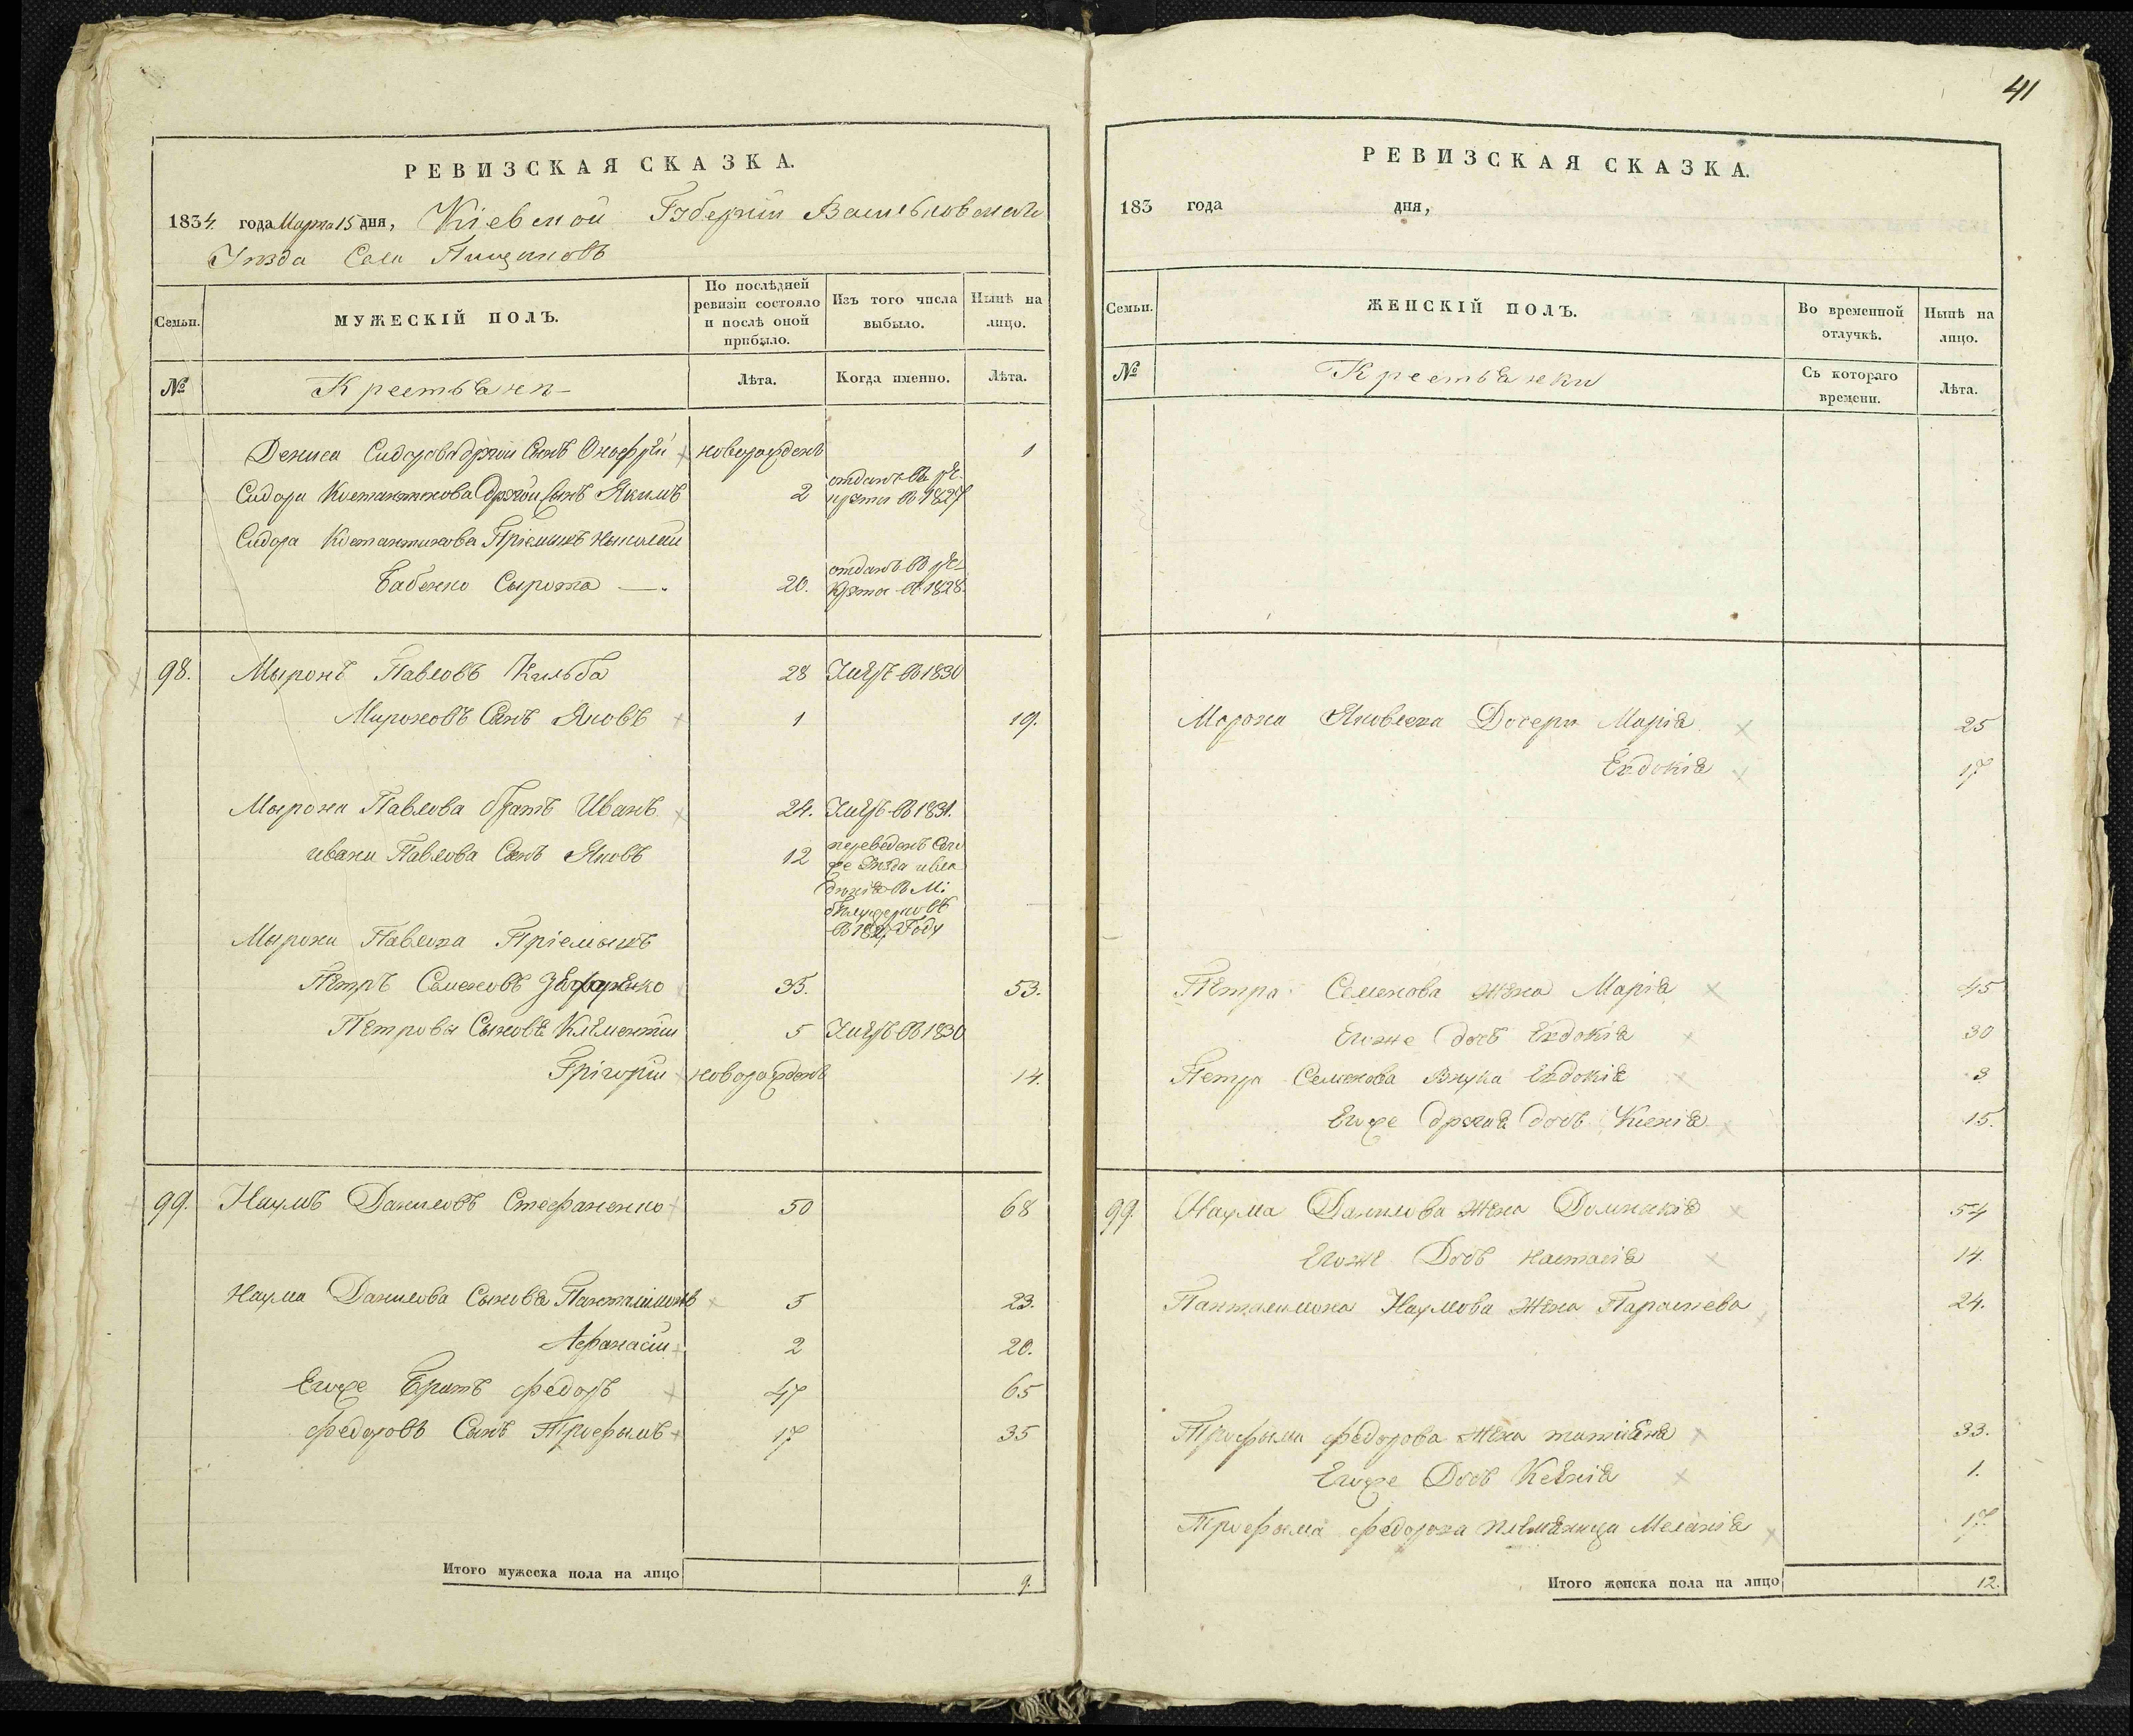 РЕВИЗСКАЯ СКАЗКА.
1834 года Марта 15 дня, Кіевской Губерніи Васильковскаго
Уѣзда Села Пищиковъ
Семьи.
МУЖЕСКІЙ ПОЛЪ.
По послѣдней ревизіи состояло и послѣ оной прибыло.
Изъ того числа выбыло.
Нынѣ на лицо.
№
Крестьяне
Лѣта.
Когда именно.
Лѣта.
Дениса Сидорова другій Сынъ Онофрѣй новорожденъ 1
Сидора Костантинова другій Сынъ Якимъ 2 отданъ въ рекруты въ 1827
Сидора Костантинова Пріемышъ Николай
Бабенко Сырота —. 20. отданъ въ рекруты въ 1828.
98. Мыронъ Павловъ Кильба 28 Умеръ въ 1830
Мироновъ Сынъ Яковъ 1 19.
Мырона Павлова братъ Иванъ 24. Умеръ въ 1831.
ивана Павлова Сынъ Яковъ 12 переведенъ
въ М:
Году
Мырона Павлова Пріемышъ
Петръ Семеновъ 35. 53.
Петровы Сыновя Климентій 5 Умеръ въ 1830
Грігорій новорожденъ 14.
99. Наумъ Даниловъ Стефаненко 50 68
Наума Данилова Сыновя Панталимонъ 5 23.
Афанасій 2 20.
Егоже Братъ федоръ 47 65
федоровъ Сынъ Трофымъ 17 35
Итого мужеска пола на лицо 9.
41
РЕВИЗСКАЯ СКАЗКА.
183 года дня,
Семьи.
ЖЕНСКІЙ ПОЛЪ.
Во временной отлучкѣ.
Нынѣ на лицо.
№
Крестьянки
Съ котораго времени.
Лѣта.
Марія 25
Евдокія 17
Петра Семенова жена Марія 45
Егоже дочь Евдокія 30
Петра Семенова Внука Евдокія 3
Егоже другая дочь Ксенія 15.
99. Наума Данилова жена Домникія 54
Егоже Дочь Настасія 14.
Панталимона Наумова жена Параскева 24.
Трофыма федорова жена татіана 33.
Егоже Дочь Ксенія 1.
Трофыма федорова племяница Меланія 17.
Итого женска пола на лицо 12.